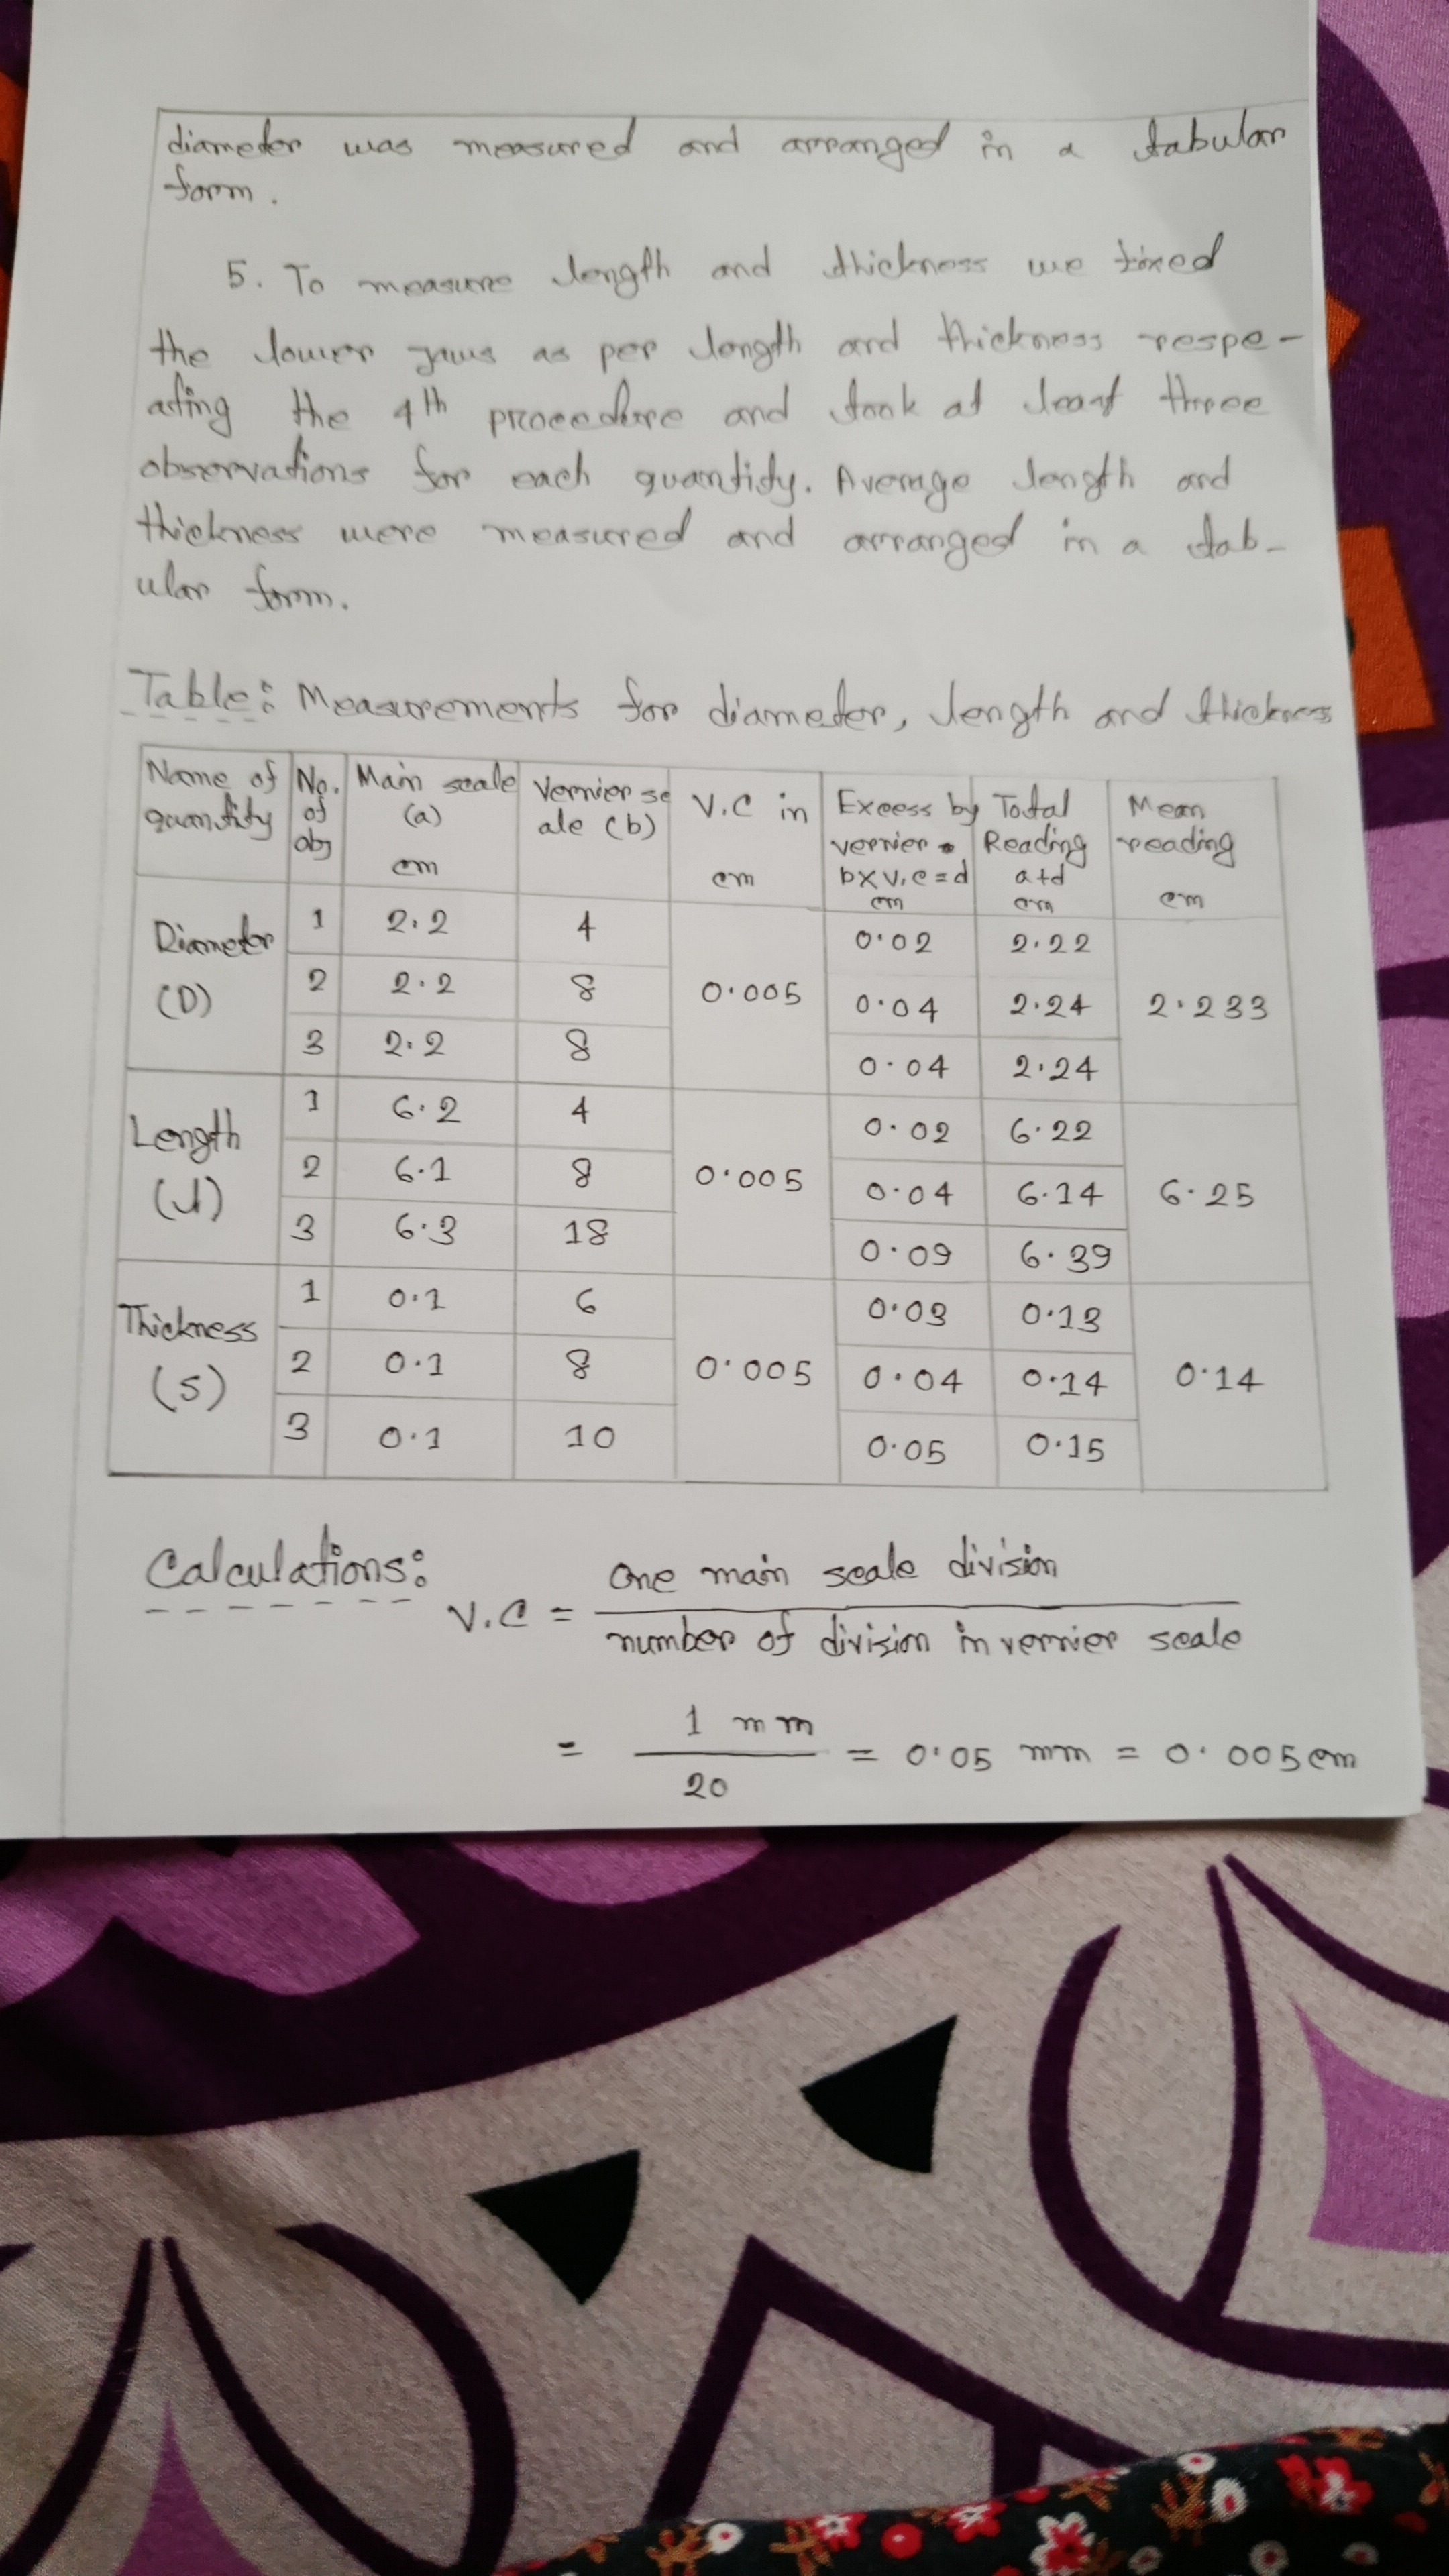 diameter was measured and arranged in a tabular
form.
5. To measure length and thickness we fixed
the lower jaws as per length and thickness respe-
acting the 4th procedure and took at least three
observations for each quantity. Average length and
thickness were measured and arranged in a tab-
ular form.
Table: Measurements for diameter, length and thickness
Name of quantity | No. of obs | Main scale (a) cm | Vernier sc ale (b) | V.C in cm | Excess by vernier b×v.c = d cm | Total Reading a+d cm | Mean reading cm
Diameter (D) | 1 | 2.2 | 4 | 0.005 | 0.02 | 2.22 | 2.233
2 | 2.2 | 8 | 0.04 | 2.24
3 | 2.2 | 8 | 0.04 | 2.24
Length (l) | 1 | 6.2 | 4 | 0.005 | 0.02 | 6.22 | 6.25
2 | 6.1 | 8 | 0.04 | 6.14
3 | 6.3 | 18 | 0.09 | 6.39
Thickness (s) | 1 | 0.1 | 6 | 0.005 | 0.03 | 0.13 | 0.14
2 | 0.1 | 8 | 0.04 | 0.14
3 | 0.1 | 10 | 0.05 | 0.15
Calculations:
V.C = one main scale division / number of division in vernier scale
= 1 mm / 20 = 0.05 mm = 0.005 cm